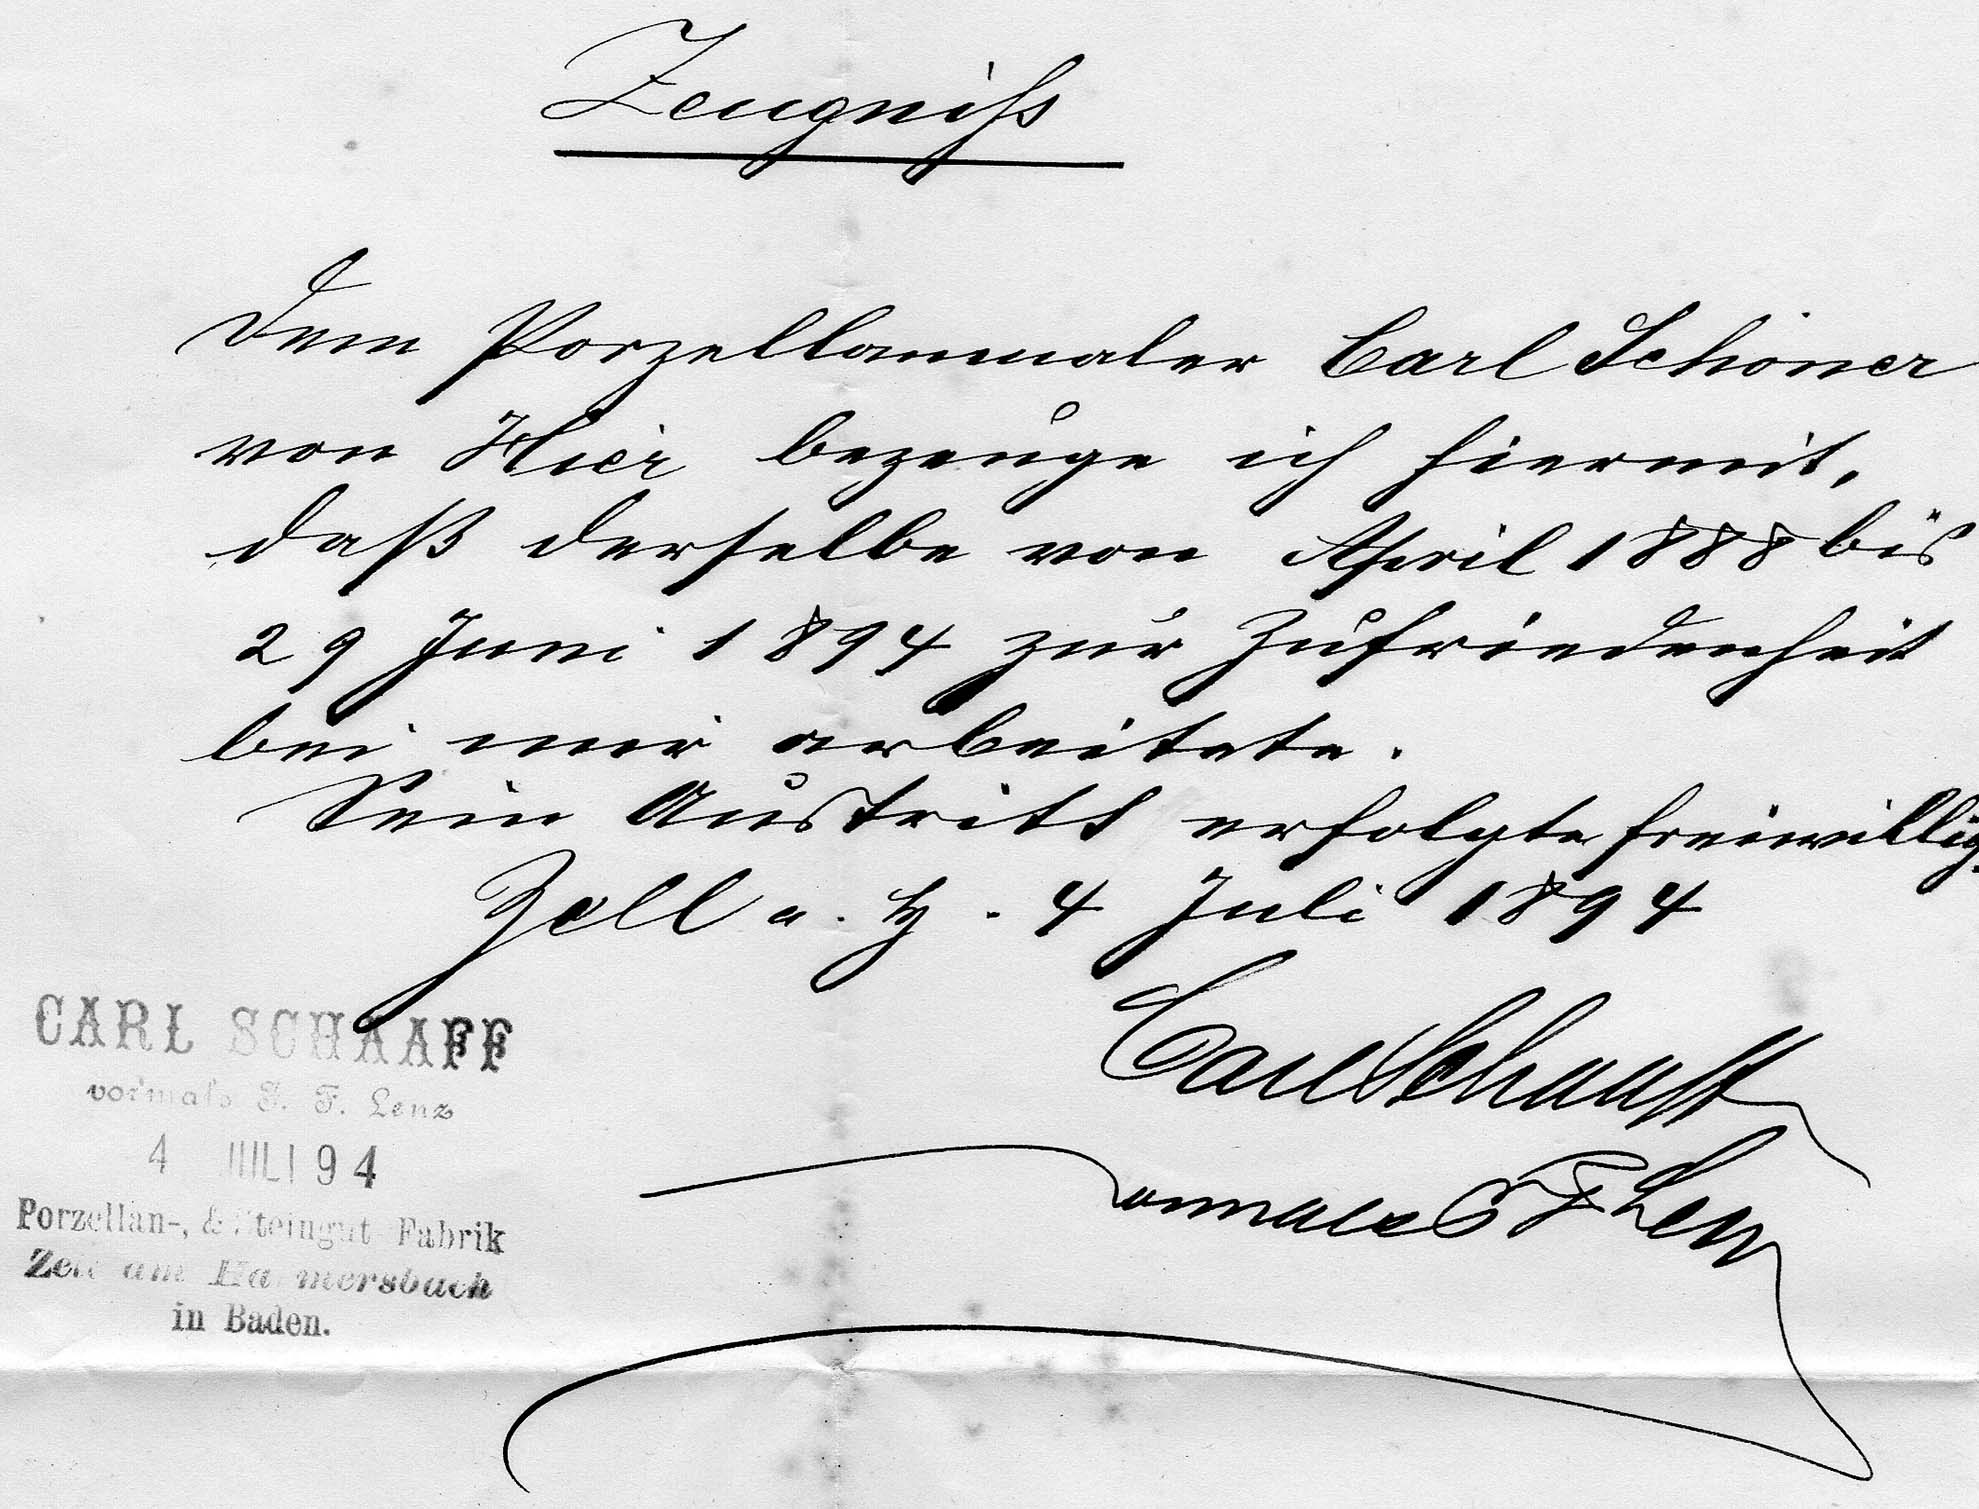 Zeugniss
Dem Porzellanmaler Carl Schöner
von Hier bezeuge ich hiermit,
daß derselbe von April 1888 bis
29 Juni 1894 zur Zufriedenheit
bei mir arbeitete.
Sein Austritt erfolgte freiwillig.
Zell a. H. 4 Juli 1894
Carl Schaaff
vormals J F Lenz
CARL SCHAAFF
vormals J. F. Lenz
4 JULI 94
Porzellan-, & Steingut Fabrik
Zell am Hammersbach
in Baden.